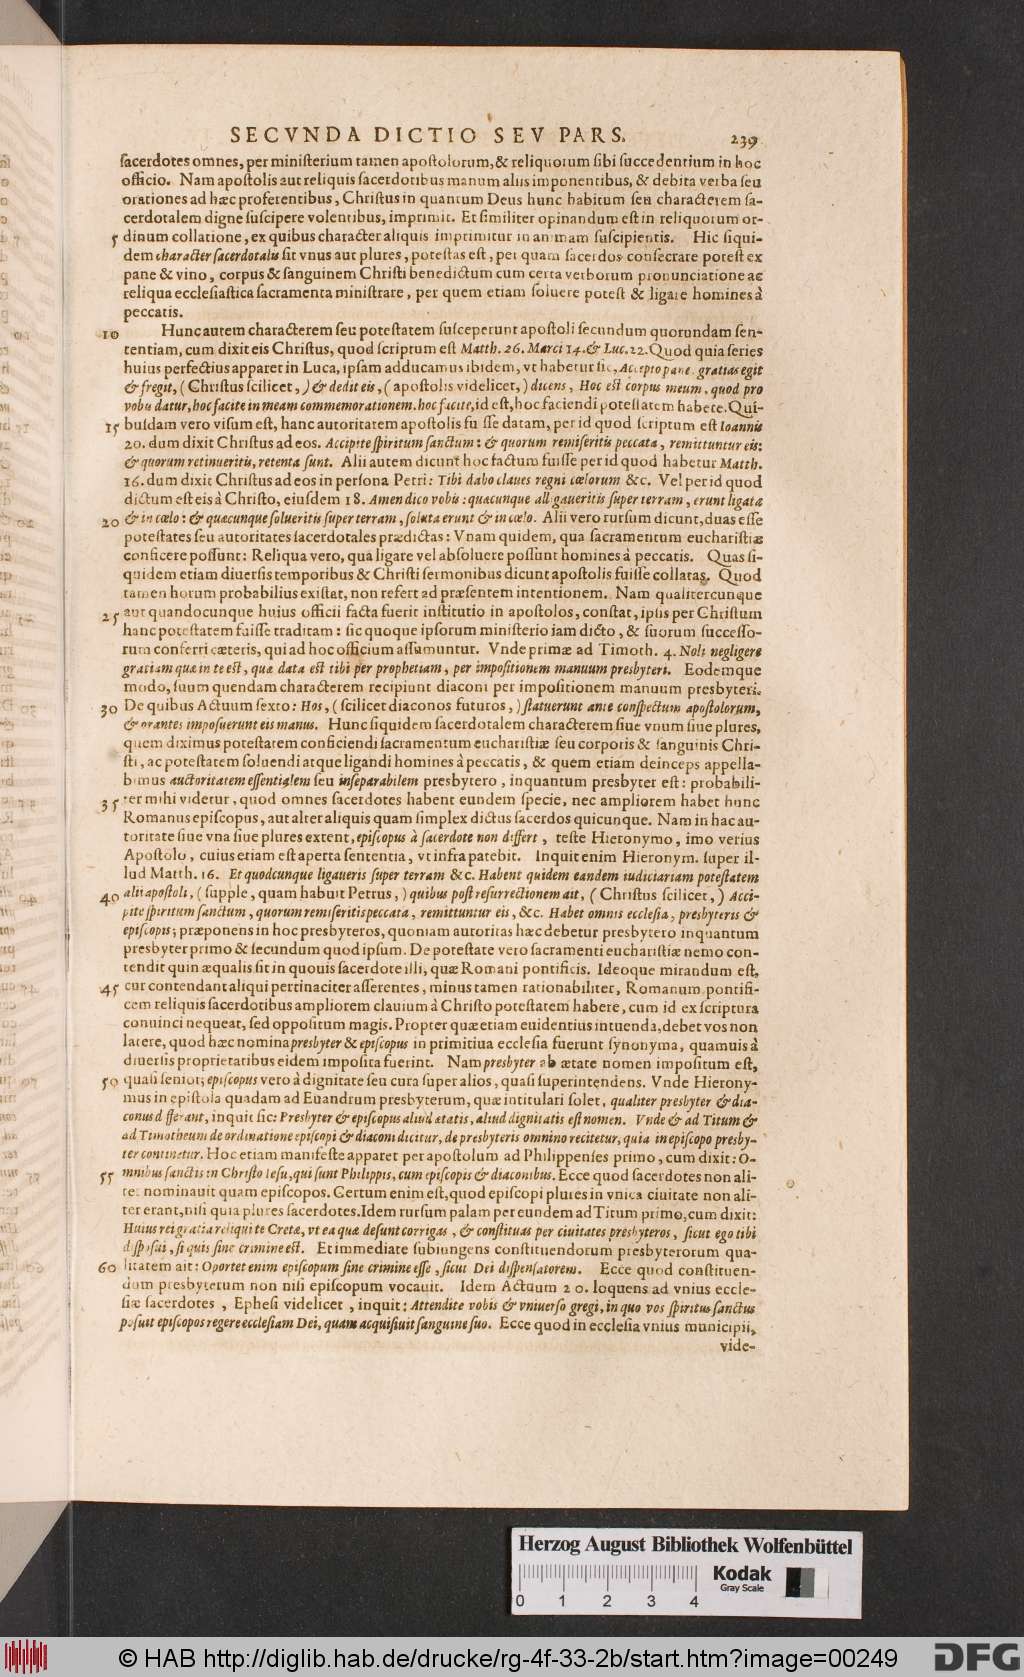 SECVNDA DICTIO SEV PARS. 239
sacerdotes omnes, per ministerium tamen apostolorum, & reliquorum sibi succedentium in hoc
officio. Nam apostolis aut reliquis sacerdotibus manum aliis imponentibus, & debita verba seu
orationes ad hæc proferentibus, Christus in quantum Deus hunc habitum seu characterem sa-
cerdotalem digne suscipere volentibus, imprimit. Et similiter opinandum est in reliquorum or-
5 dinum collatione, ex quibus character aliquis imprimitur in animam suscipientis. Hic siqui-
dem character sacerdotalis sit vnus aut plures, potestas est, per quam sacerdos consecrare potest ex
pane & vino, corpus & sanguinem Christi benedictum cum certa verborum pronunciatione ac
reliqua ecclesiastica sacramenta ministrare, per quem etiam soluere potest & ligare homines à
peccatis.
10 Hunc autem characterem seu potestatem susceperunt apostoli secundum quorundam sen-
tentiam, cum dixit eis Christus, quod scriptum est Matth. 26. Marci 14. & Luc. 22. Quod quia series
huius perfectius apparet in Luca, ipsam adducamus ibidem, vt habetur sic, Accepto pane gratias egit
& fregit, (Christus scilicet,) & dedit eis, (apostolis videlicet,) dicens, Hoc est corpus meum, quod pro
vobis datur, hoc facite in meam commemorationem. hoc facite, id est, hoc faciendi potestatem habete. Qui-
15 busdam vero visum est, hanc autoritatem apostolis fuisse datam, per id quod scriptum est Ioannis
20. dum dixit Christus ad eos. Accipite spiritum sanctum: & quorum remiseritis peccata, remittuntur eis:
& quorum retinueritis, retenta sunt. Alii autem dicunt hoc factum fuisse per id quod habetur Matth.
16. dum dixit Christus ad eos in persona Petri: Tibi dabo claues regni cœlorum &c. Vel per id quod
dictum est eis à Christo, eiusdem 18. Amen dico vobis: quæcunque alligaueritis super terram, erunt ligata
20 & in cœlo: & quæcunque solueritis super terram, soluta erunt & in cœlo. Alii vero rursum dicunt, duas esse
potestates seu autoritates sacerdotales prædictas: Vnam quidem, qua sacramentum eucharistiæ
conficere possunt: Reliqua vero, qua ligare vel absoluere possunt homines à peccatis. Quas si-
quidem etiam diuersis temporibus & Christi sermonibus dicunt apostolis fuisse collatas. Quod
tamen horum probabilius existat, non refert ad præsentem intentionem. Nam qualitercunque
25 aut quandocunque huius officii facta fuerit institutio in apostolos, constat, ipsis per Christum
hanc potestatem fuisse traditam: sic quoque ipsorum ministerio iam dicto, & suorum successo-
rum conferri cæteris, qui ad hoc officium assumuntur. Vnde primæ ad Timoth. 4. Noli negligere
gratiam quæ in te est, quæ data est tibi per prophetiam, per impositionem manuum presbyteri. Eodemque
modo, suum quendam characterem recipiunt diaconi per impositionem manuum presbyteri.
30 De quibus Actuum sexto: Hos, (scilicet diaconos futuros,) statuerunt ante conspectum apostolorum,
& orantes imposuerunt eis manus. Hunc siquidem sacerdotalem characterem siue vnum siue plures,
quem diximus potestatem conficiendi sacramentum eucharistiæ seu corporis & sanguinis Chri-
sti, ac potestatem soluendi atque ligandi homines à peccatis, & quem etiam deinceps appella-
bimus auctoritatem essentialem seu inseparabilem presbytero, inquantum presbyter est: probabili-
35 ter mihi videtur, quod omnes sacerdotes habent eundem specie, nec ampliorem habet hunc
Romanus episcopus, aut alter aliquis quam simplex dictus sacerdos quicunque. Nam in hac au-
toritate siue vna siue plures extent, episcopus à sacerdote non differt, teste Hieronymo, imo verius
Apostolo, cuius etiam est aperta sententia, vt infra patebit. Inquit enim Hieronym. super il-
lud Matth. 16. Et quodcunque ligaueris super terram &c. Habent quidem eandem iudiciariam potestatem
40 alii apostoli, (supple, quam habuit Petrus,) quibus post resurrectionem ait, (Christus scilicet,) Acci-
pite spiritum sanctum, quorum remiseritis peccata, remittuntur eis, &c. Habet omnis ecclesia, presbyteris &
episcopis; præponens in hoc presbyteros, quoniam autoritas hæc debetur presbytero inquantum
presbyter primo & secundum quod ipsum. De potestate vero sacramenti eucharistiæ nemo con-
tendit quin æqualis sit in quouis sacerdote illi, quæ Romani pontificis. Ideoque mirandum est,
45 cur contendant aliqui pertinaciter asserentes, minus tamen rationabiliter, Romanum pontifi-
cem reliquis sacerdotibus ampliorem clauium à Christo potestatem habere, cum id ex scriptura
conuinci nequeat, sed oppositum magis. Propter quæ etiam euidentius intuenda, debet vos non
latere, quod hæc nomina presbyter & episcopus in primitiua ecclesia fuerunt synonyma, quamuis à
diuersis proprietatibus eidem imposita fuerint. Nam presbyter ab ætate nomen impositum est,
50 quasi senior; episcopus vero à dignitate seu cura super alios, quasi superintendens. Vnde Hierony-
mus in epistola quadam ad Euandrum presbyterum, quæ intitulari solet, qualiter presbyter & dia-
conus differant, inquit sic: Presbyter & episcopus aliud ætatis, aliud dignitatis est nomen. Vnde & ad Titum &
ad Timotheum de ordinatione episcopi & diaconi dicitur, de presbyteris omnino recitetur, quia in episcopo presby-
ter continetur. Hoc etiam manifeste apparet per apostolum ad Philippenses primo, cum dixit: O-
55 mnibus sanctis in Christo Iesu, qui sunt Philippis, cum episcopis & diaconibus. Ecce quod sacerdotes non ali-
ter nominauit quam episcopos. Certum enim est, quod episcopi plures in vnica ciuitate non ali-
ter erant, nisi quia plures sacerdotes. Idem rursum palam per eundem ad Titum primo, cum dixit:
Huius rei gratia reliqui te Cretæ, vt ea quæ desunt corrigas, & constituas per ciuitates presbyteros, sicut ego tibi
disposui, si quis sine crimine est. Et immediate subiungens constituendorum presbyterorum qua-
60 litatem ait: Oportet enim episcopum sine crimine esse, sicut Dei dispensatorem. Ecce quod constituen-
dum presbyterum non nisi episcopum vocauit. Idem Actuum 20. loquens ad vnius eccle-
siæ sacerdotes, Ephesi videlicet, inquit: Attendite vobis & vniuerso gregi, in quo vos spiritus sanctus
posuit episcopos regere ecclesiam Dei, quam acquisiuit sanguine suo. Ecce quod in ecclesia vnius municipii,
vide-
Herzog August Bibliothek Wolfenbüttel
Kodak
Gray Scale
0 1 2 3 4
© HAB http://diglib.hab.de/drucke/rg-4f-33-2b/start.htm?image=00249
DFG